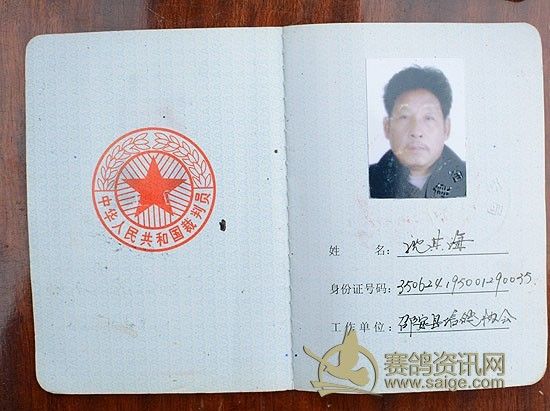 中华人民共和国裁判员
姓 名: 沈其海
身份证号码: 350624195001290035
工作单位: 邵安县信鸽协会
赛鸽资讯网
www.saige.com